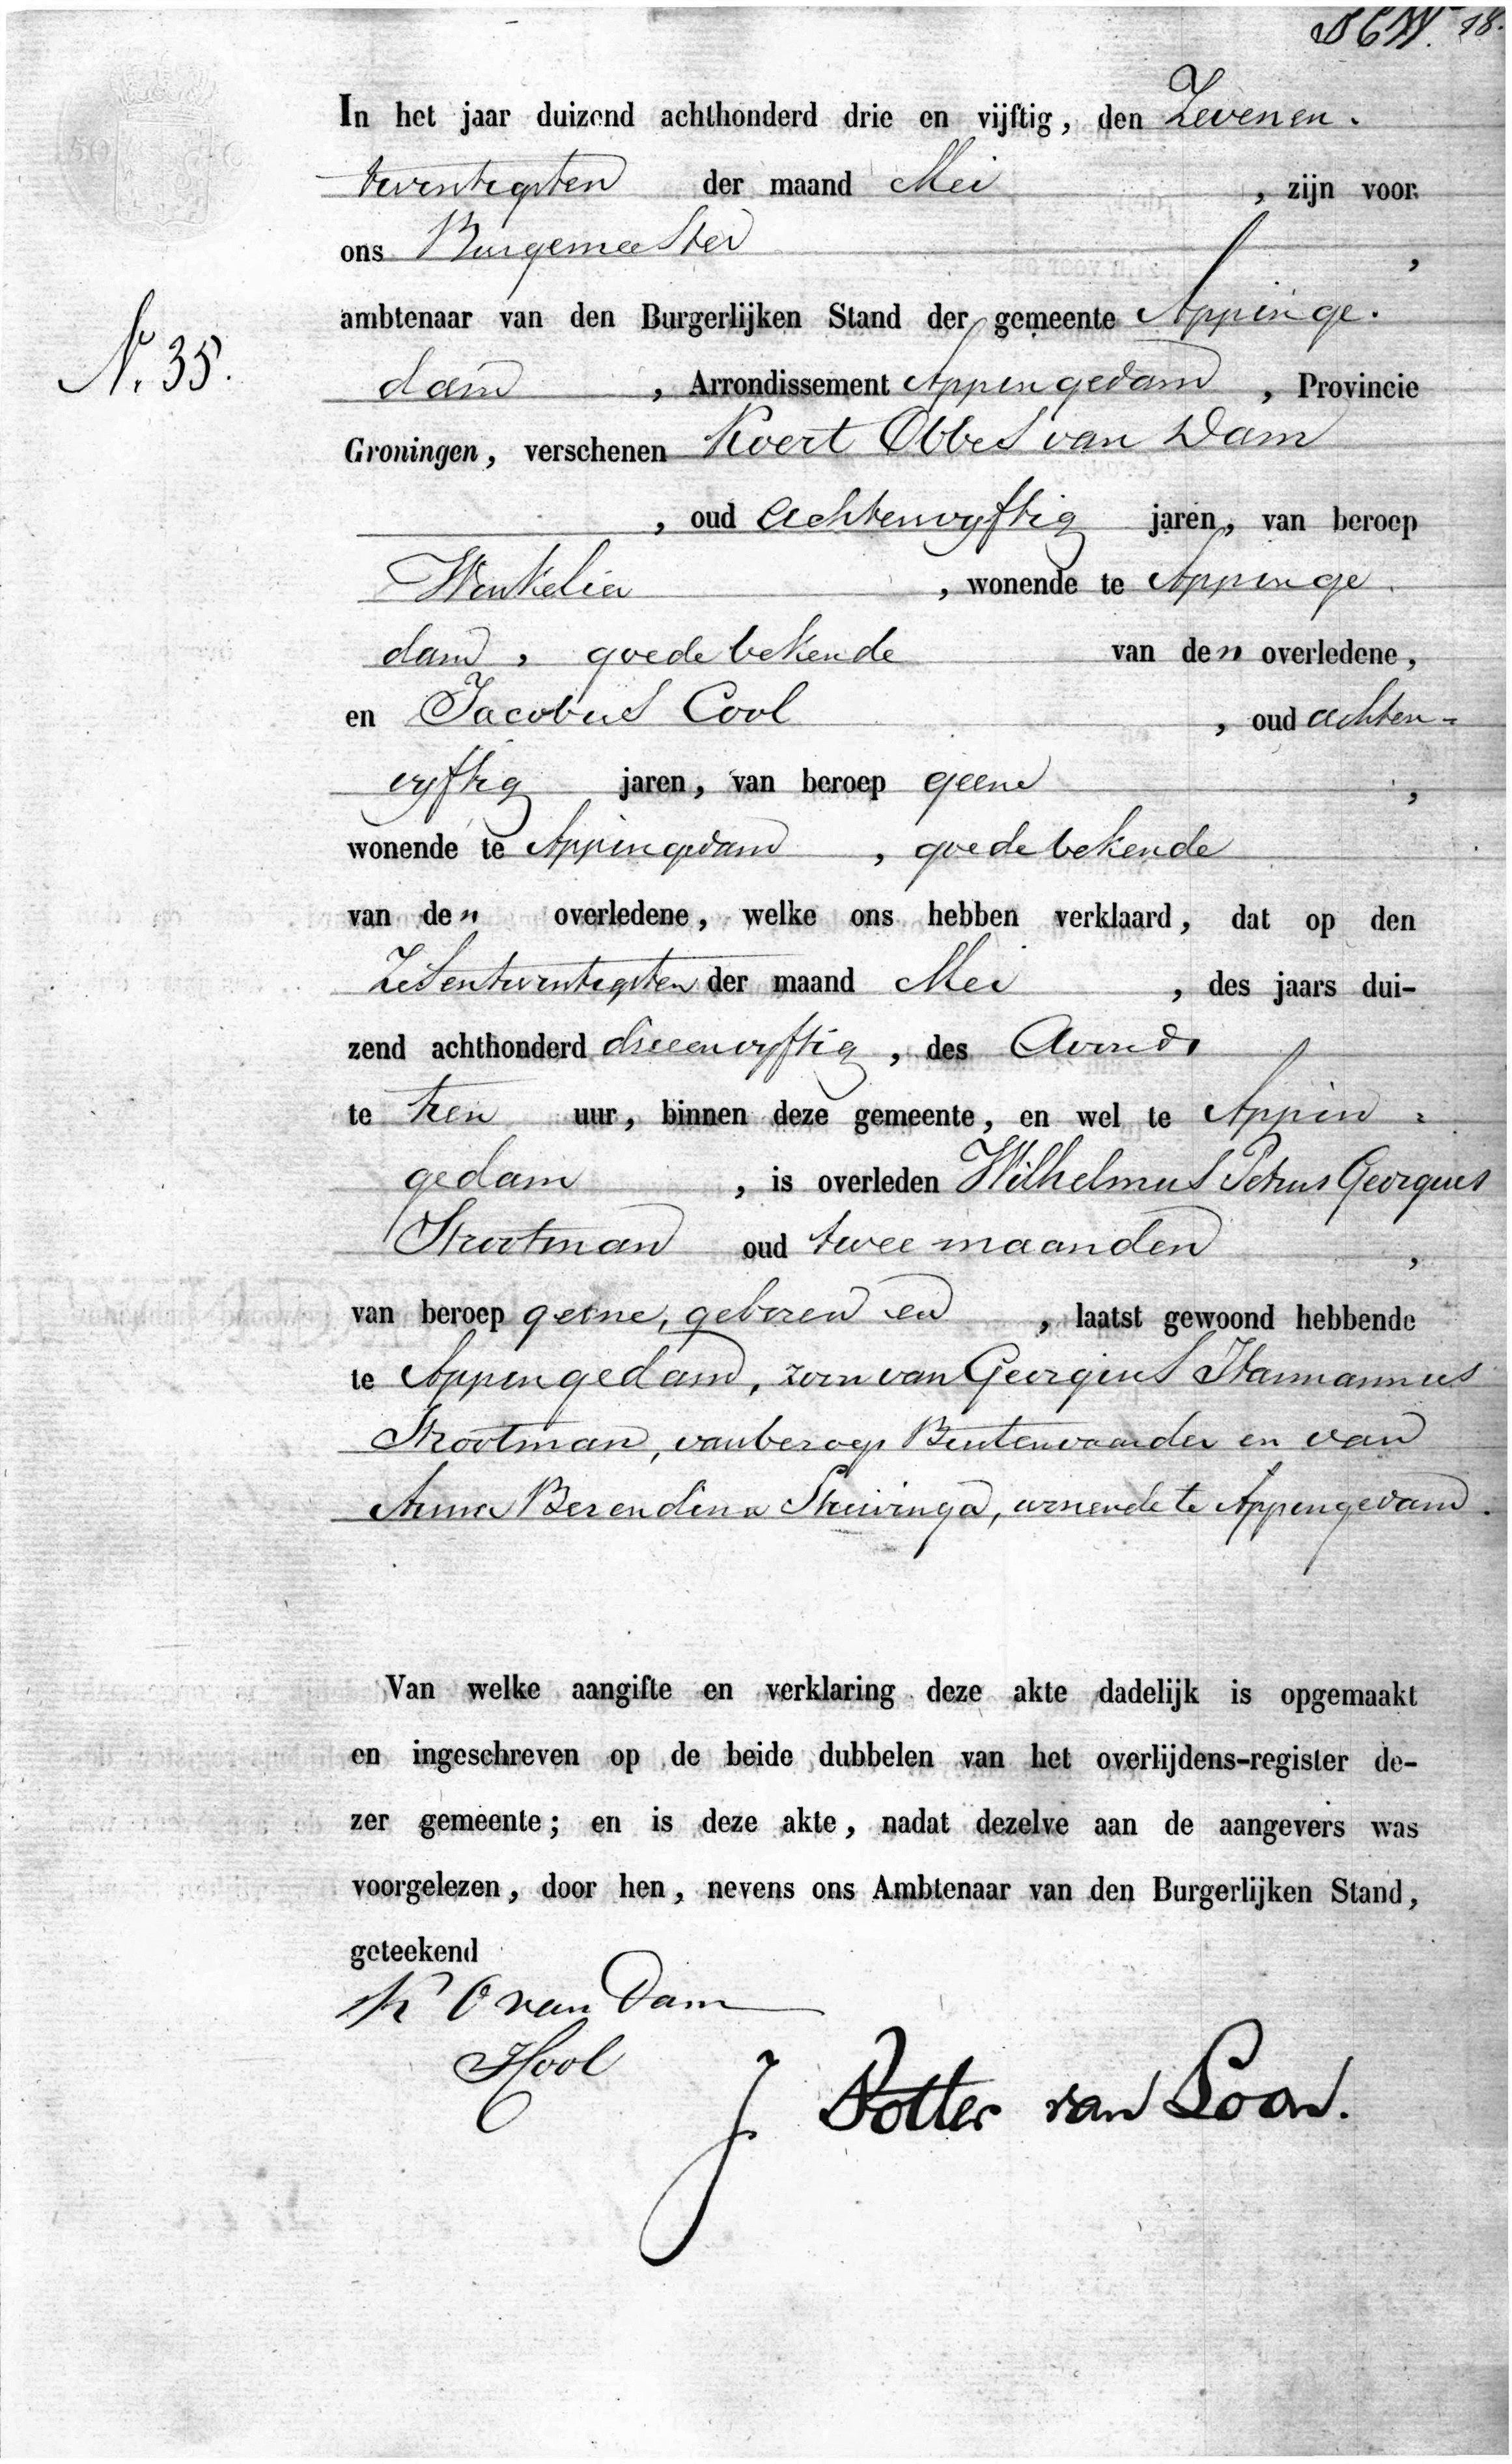 18.
In het jaar duizend achthonderd drie en vijftig, den Zevenen.
twentigsten der maand Mei , zijn voor
ons Burgemeester ,
ambtenaar van den Burgerlijken Stand der gemeente Appinge.
N. 35.
dam , Arrondissement Appingedam , Provincie
Groningen, verschenen Koert Obbes van Dam
, oud achtenvyftig jaren, van beroep
Winkelier , wonende te Appinge
dam , goede bekende van den overledene,
en Jacobus Cool , oud achten=
vyftig jaren, van beroep geene ,
wonende te Appingedam , goede bekende
van den overledene, welke ons hebben verklaard, dat op den
Zesentwintigsten der maand Mei , des jaars dui-
zend achthonderd drieenvyftig , des Avonds
te tien uur, binnen deze gemeente, en wel te Appin =
gedam , is overleden Wilhelmus Petrus Georgius
Strootman oud twee maanden ,
van beroep geene, geboren en , laatst gewoond hebbende
te Appingedam, zoon van Georgius Hermannus
Strootman, van beroep Buitenvaarder en van
Anna Berendina Stuivinga, wonende te Appingedam.
Van welke aangifte en verklaring deze akte dadelijk is opgemaakt
en ingeschreven op de beide dubbelen van het overlijdens-register de-
zer gemeente; en is deze akte, nadat dezelve aan de aangevers was
voorgelezen, door hen, nevens ons Ambtenaar van den Burgerlijken Stand,
geteekend
K O van Dam
JCool
J Potter van Loon.